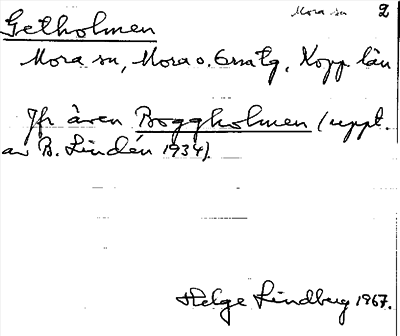 Mora sn 2
Getholmen
Mora sn, Mora o. Orsa tg, Kopp län
Jfr även Boggholmen (uppt.
av B. Lindén 1934).
Helge Lindberg 1967.